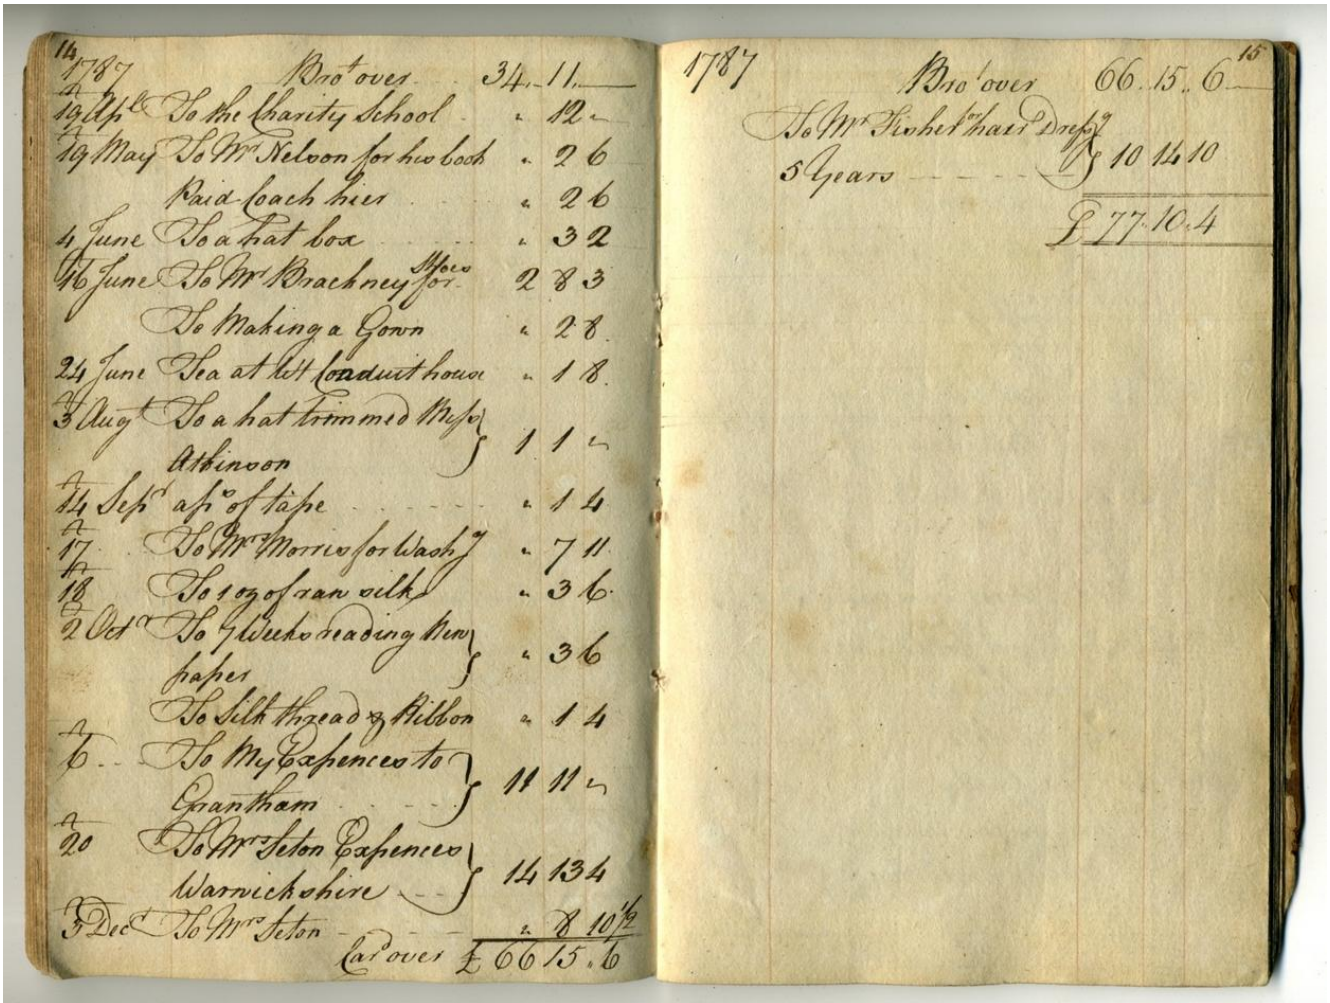 14
1787 Bro.t over 34 11 —
19 Apl To the Charity School " 12 "
19 May To Mr Nelson for his book " 2 6
Paid Coach hier " 2 6
4 June To a hat box " 3 2
16 June To Mr Brackney for Shoes 2 8 3
To Making a Gown " 2 8
24 June Tea at Wt Conduit house " 1 8
3 Augt To a hat trimmed Miss
Atkinson 1 1 "
14 Sepr a ps of tape " 1 4
17 To Mrs Morris for Washg " 7 11
18 To 1 oz of raw silk " 3 6
2 Octr To 7 Weeks reading New
paper " 3 6
To Silk thread & Ribbon " 1 4
6 To My Expences to
Grantham 11 11 "
20 To Mrs Seton Expences
Warwickshire 14 13 4
3 Decr To Mrs Seton " 8 10 1/2
Card over £ 66 15 " 6
15
1787 Brot over 66 15 " 6
To Mr Fisher for hair Dressg
5 Years 10 14 10
£ 77 10 4